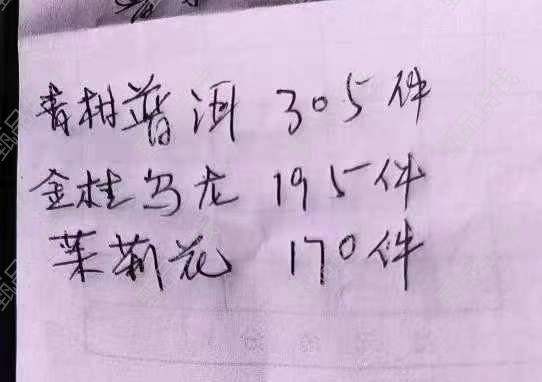 青柑普洱 305件
金桂乌龙 195件
茉莉花 170件